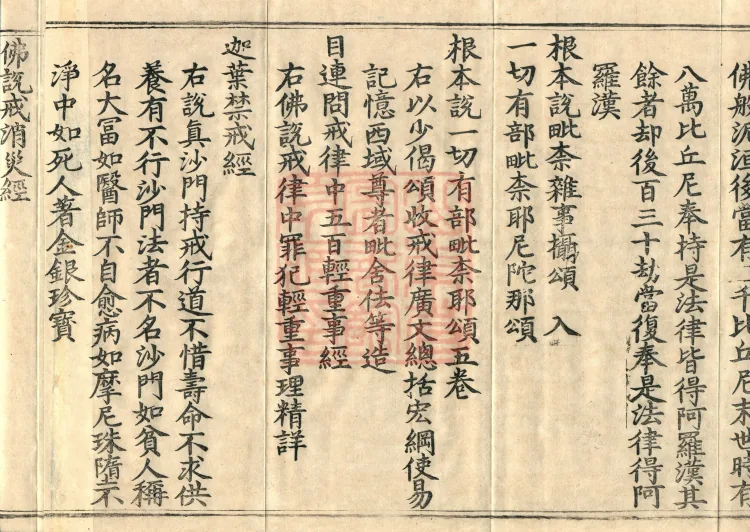 佛般泥洹後當有一千比丘尼末世時有
八萬比丘尼奉持是法律皆得阿羅漢其
餘者却後百三十劫當復奉是法律得阿
羅漢
根本說毗柰雜事攝頌 入
一切有部毗柰耶尼陀那頌
根本說一切有部毗柰耶頌五卷
右以少偈頌收戒律廣文總括宏綱使易
記憶西域尊者毗舍佉等造
目連問戒律中五百輕重事經
右佛說戒律中罪犯輕重事理精詳
迦葉禁戒經
右說真沙門持戒行道不惜壽命不求供
養有不行沙門法者不名沙門如貧人稱
名大冨如醫師不自愈病如摩尼珠墮不
淨中如死人著金銀珍寶
佛說戒消災經